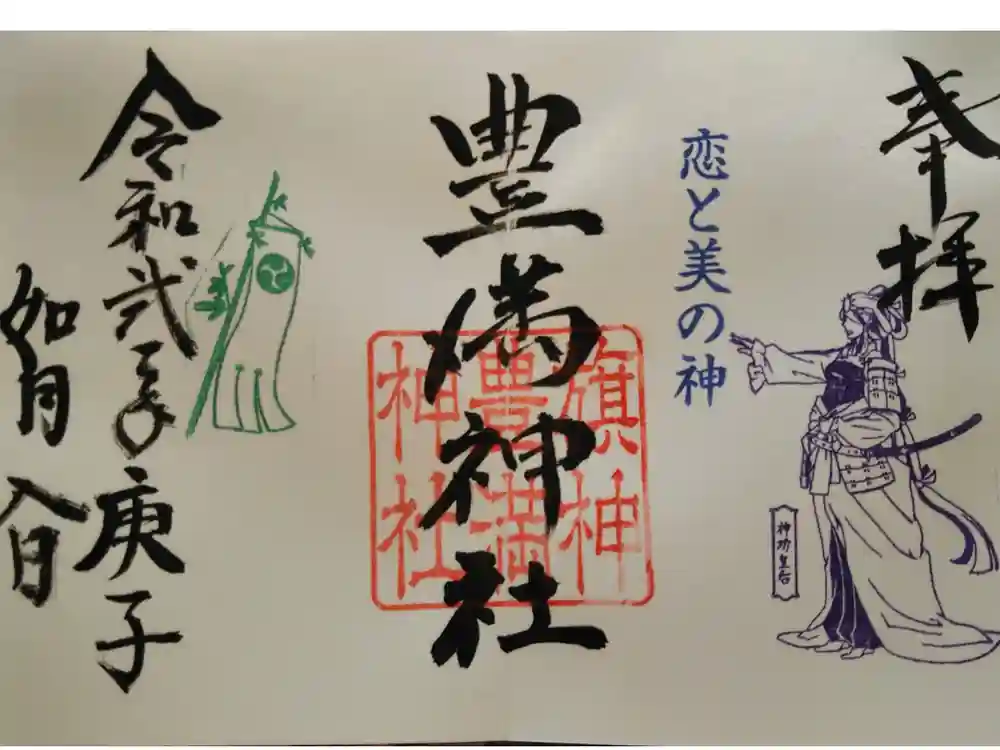 奉拝
恋と美の神
神功皇后
豊満神社
旗神
豊満
神社
令和弐年庚子
如月八日